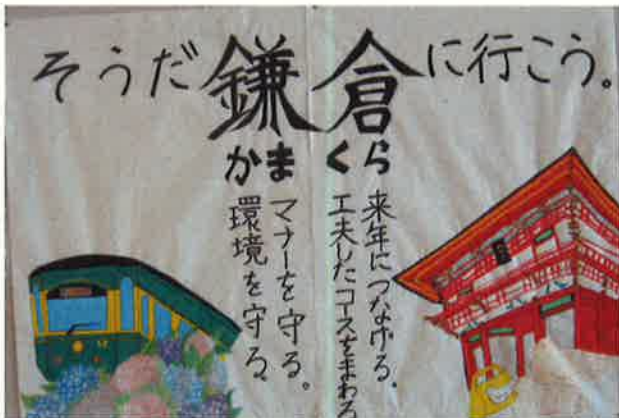 そうだ鎌倉に行こう。
かまくら
来年につなげる。
工夫したコースをまわる
マナーを守る。
環境を守る